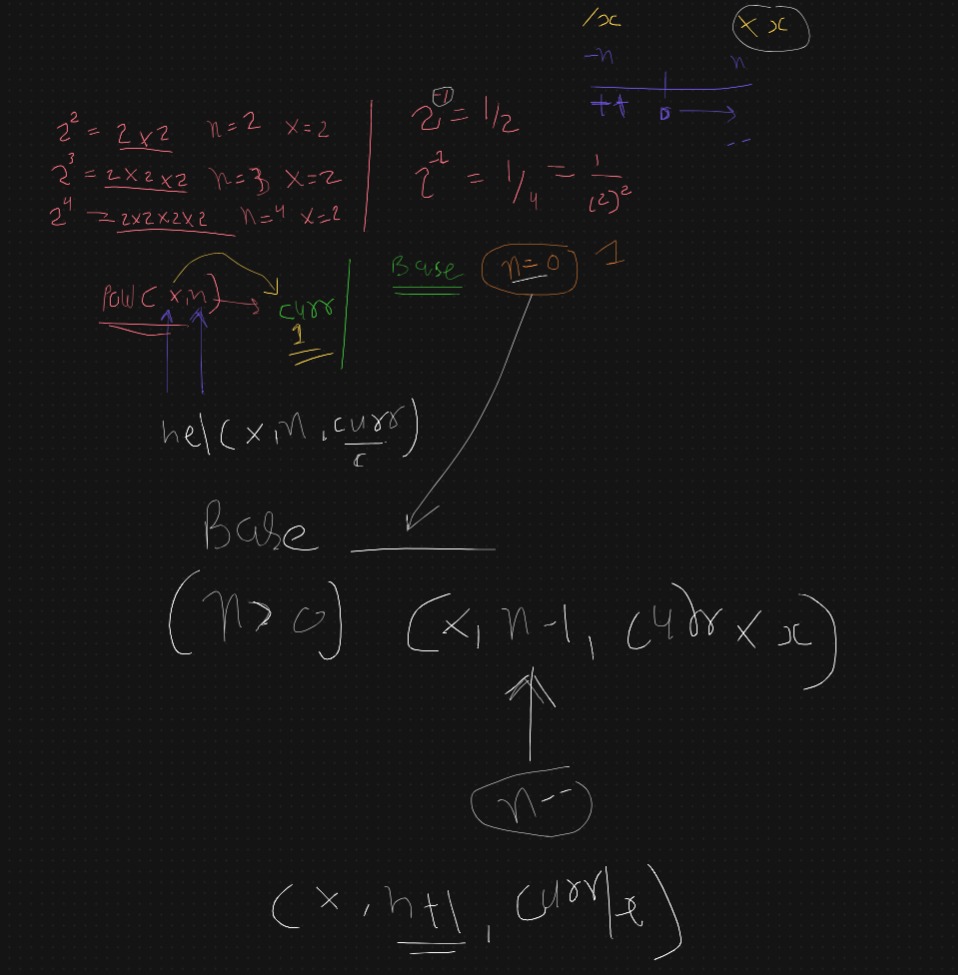 /x × x
-n n
++ 0 --
2² = 2×2 n=2 x=2
2³ = 2×2×2 n=3 x=2
2⁴ = 2×2×2×2 n=4 x=2
2⁻¹ = 1/2
2⁻² = 1/4 = 1/(2)²
Base n=0 1
POW(x,n) curr
1
hel(x,n,curr)
c
Base
(n>0) (x, n-1, curr × x)
n--
(x, n+1, curr/x)